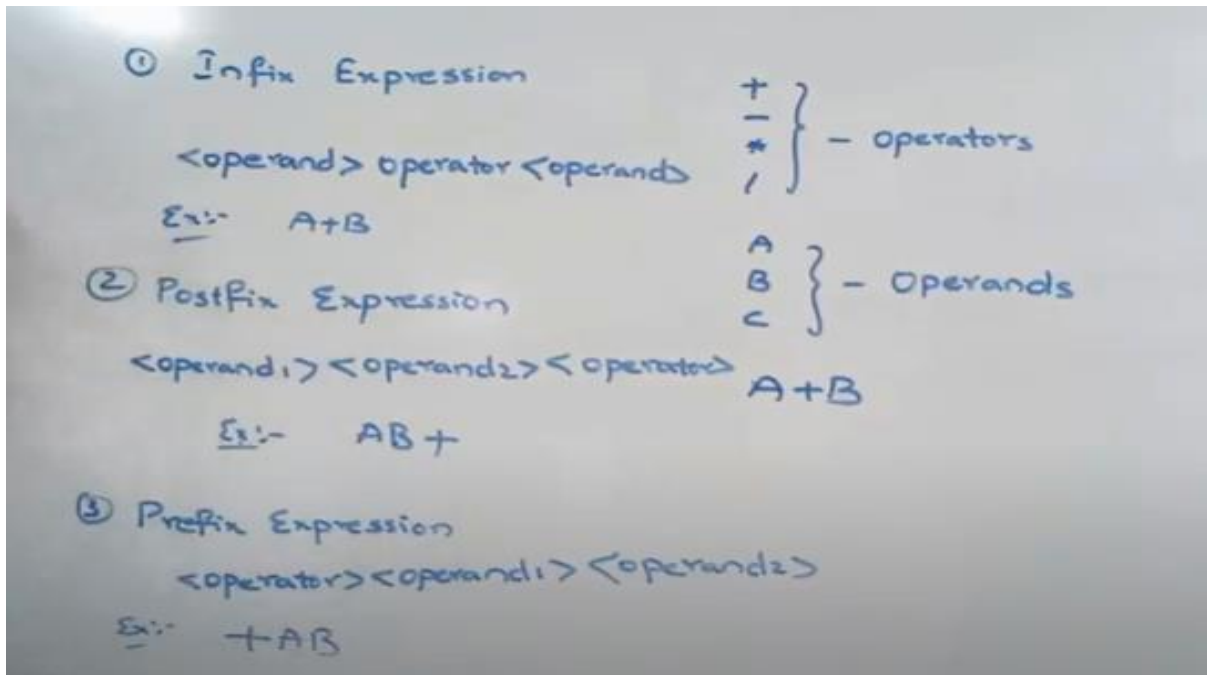 ① Infix Expression
<operand> operator <operand>
Ex:- A+B
② Postfix Expression
<operand1> <operand2> <operator>
Ex:- AB+
③ Prefix Expression
<operator> <operand1> <operand2>
Ex:- +AB
+
-
*
/
- operators
A
B
C
- Operands
A+B